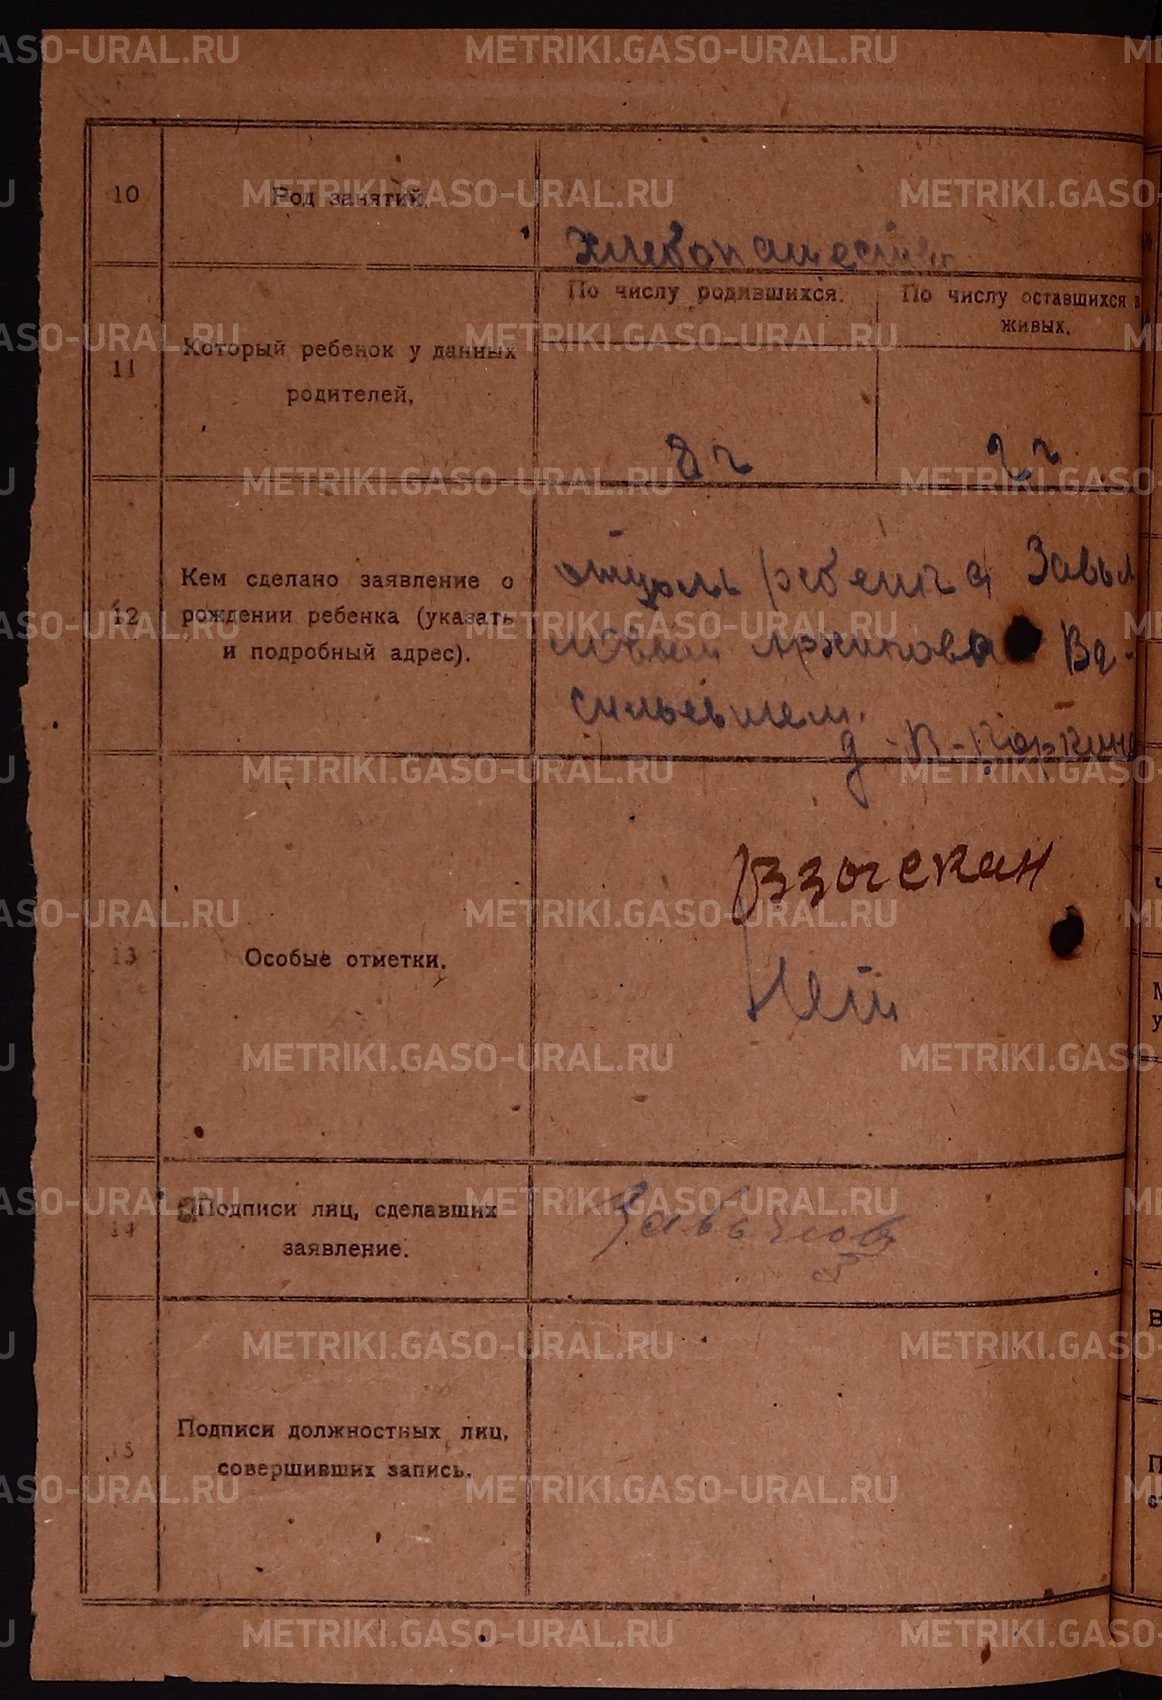 10
Род занятий.
хлебопашество
11
Который ребенок у данных
родителей.
По числу родившихся.
По числу оставшихся в
живых.
8й
2й
12
Кем сделано заявление о
рождении ребенка (указать
и подробный адрес).
отцом ребенка
Ва-
сильевичем.
д-В-
13
Особые отметки.
Взыскан
Нет
14
Подписи лиц, сделавших
заявление.
15
Подписи должностных лиц,
совершивших запись.
METRIKI.GASO-URAL.RU